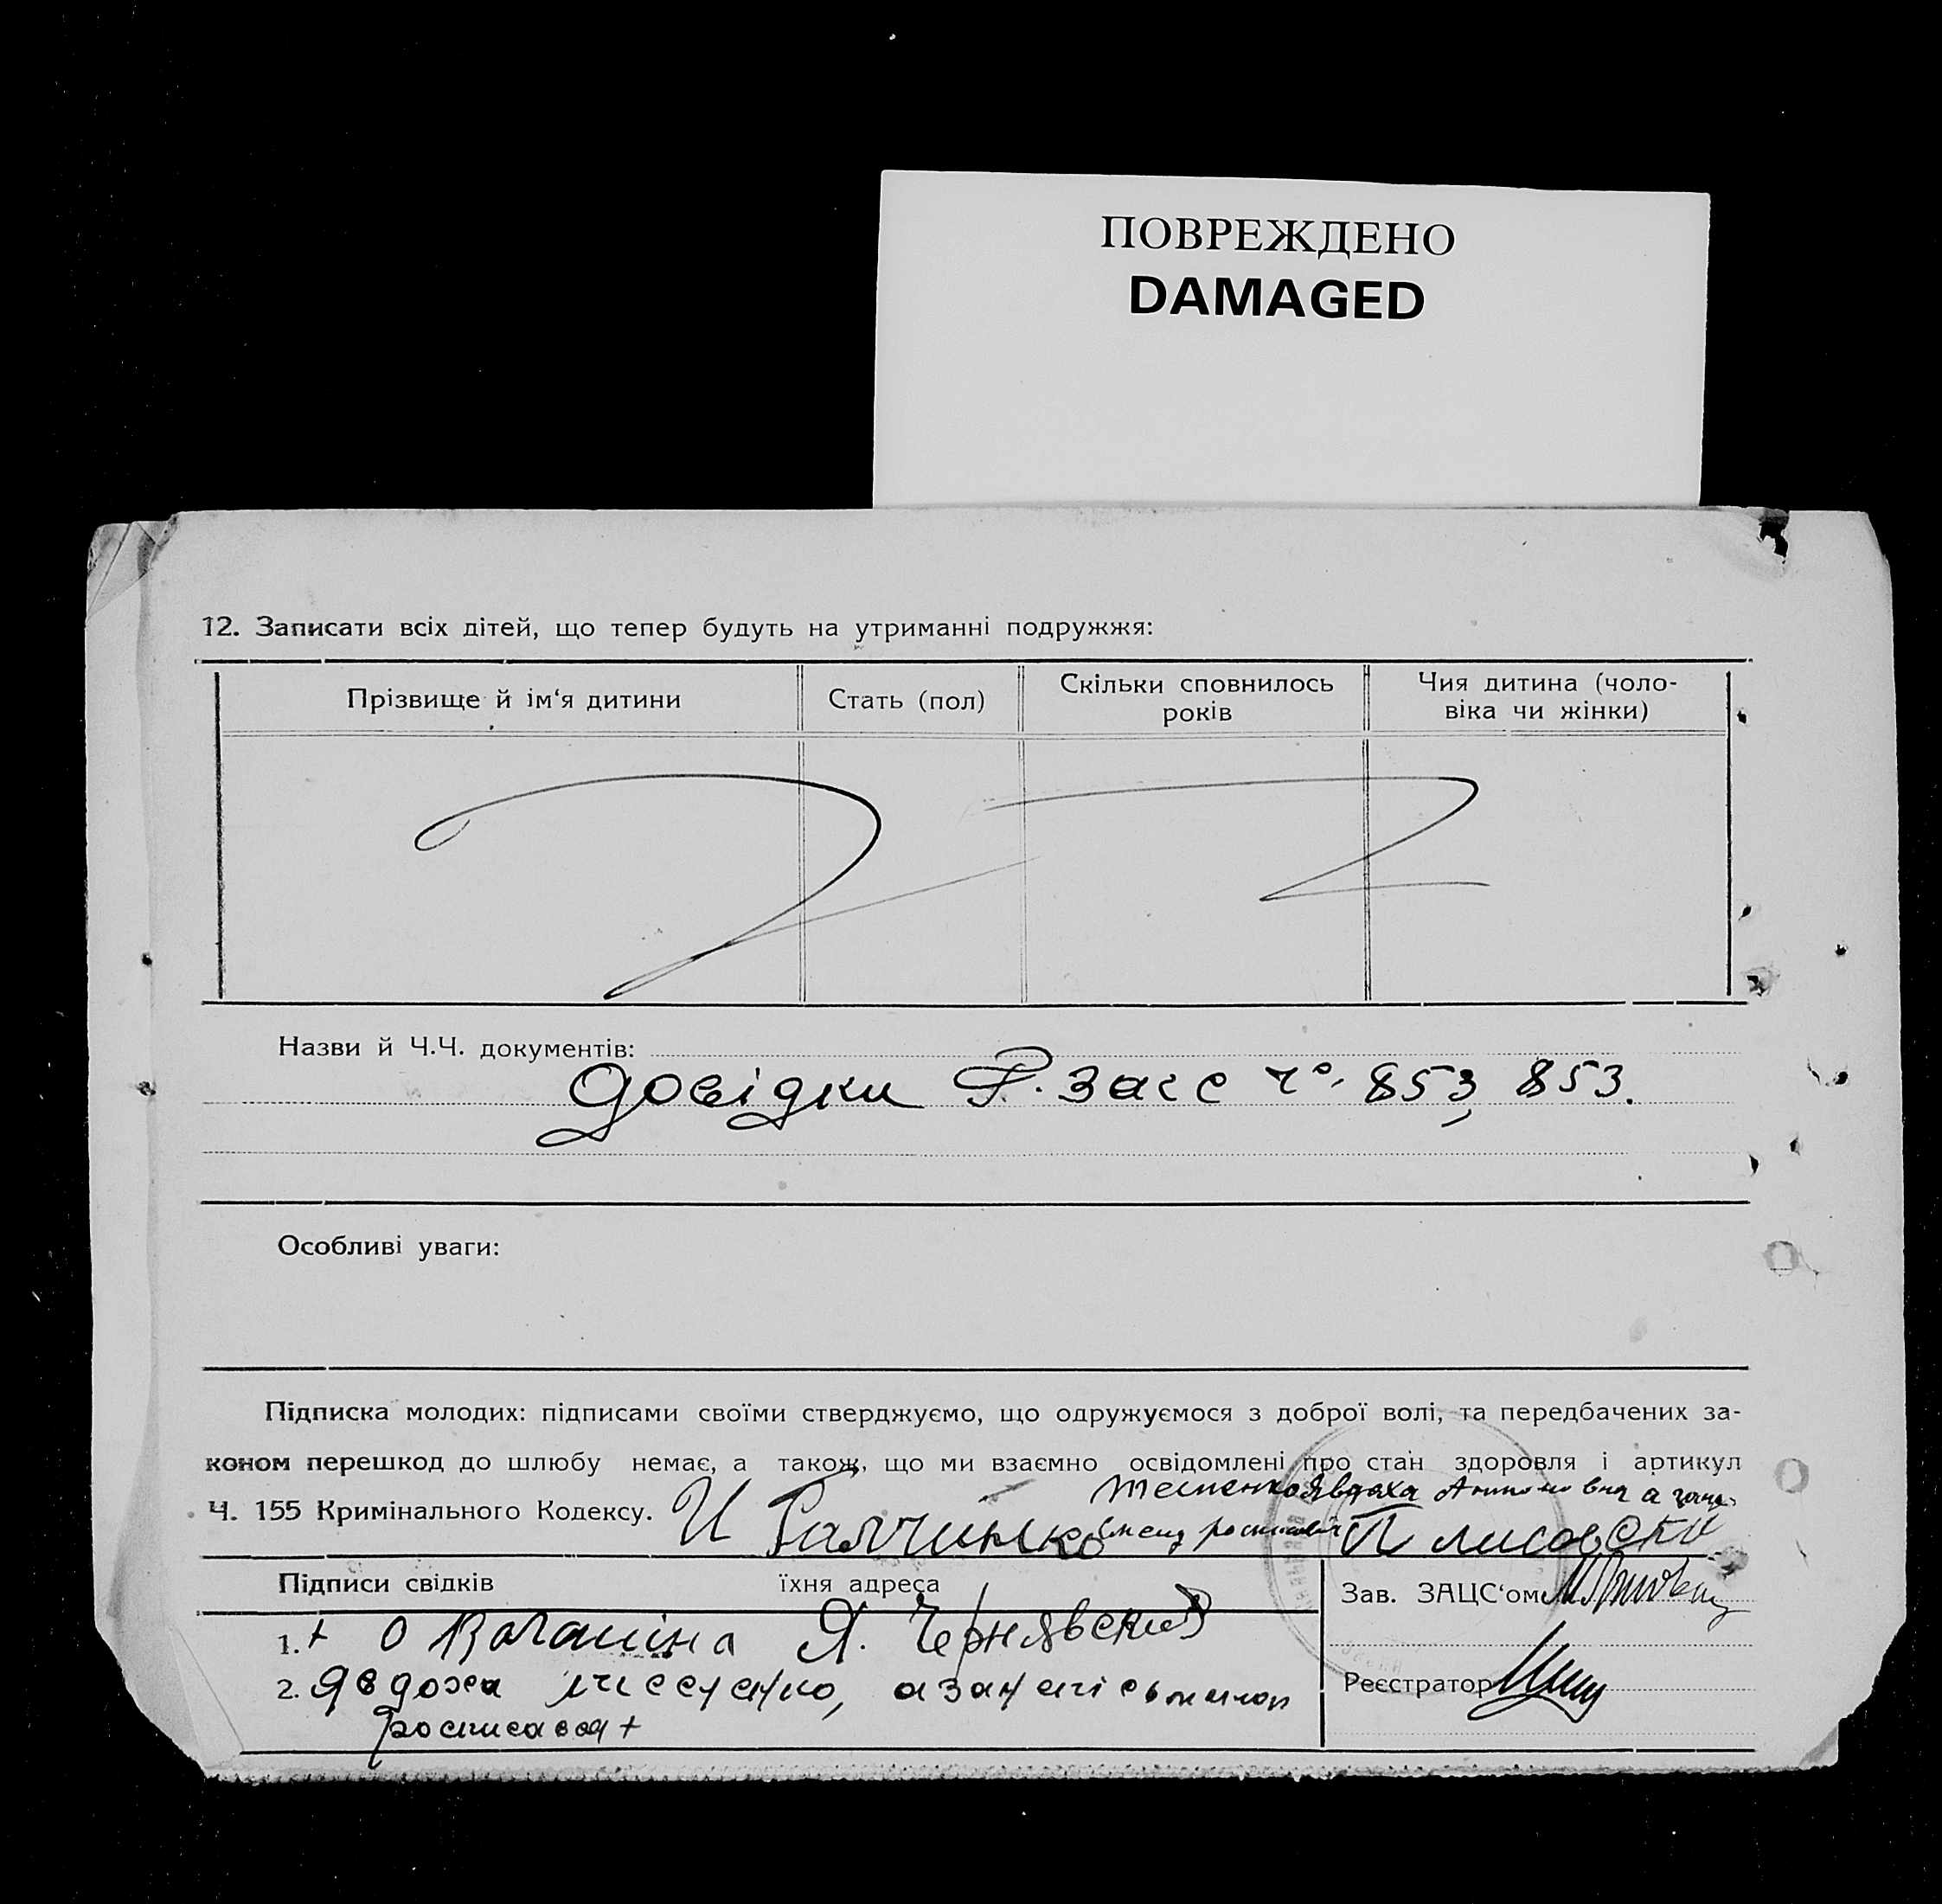 ПОВРЕЖДЕНО
DAMAGED
12. Записати всіх дітей, що тепер будуть на утриманні подружжя:
Прізвище й ім‘я дитини
Стать (пол)
Скільки сповнилось
років
Чия дитина (чоло-
віка чи жінки)
Назви й Ч.Ч. документів:
Довідки Р. Загс 853, 853.
Особливі уваги:
Підписка молодих: підписами своїми стверджуємо, що одружуємося з доброї волі, та передбачених за-
коном перешкод до шлюбу немає, а також, що ми взаємно освідомлені про стан здоровля і артикул
Явдоха
Ч. 155 Кримінального Кодексу. И Галчинько
Підписи свідків їхня адреса
Зав. ЗАЦС‘ом
1. + О Я. Чернявский
2. Явдоха
Реєстратор